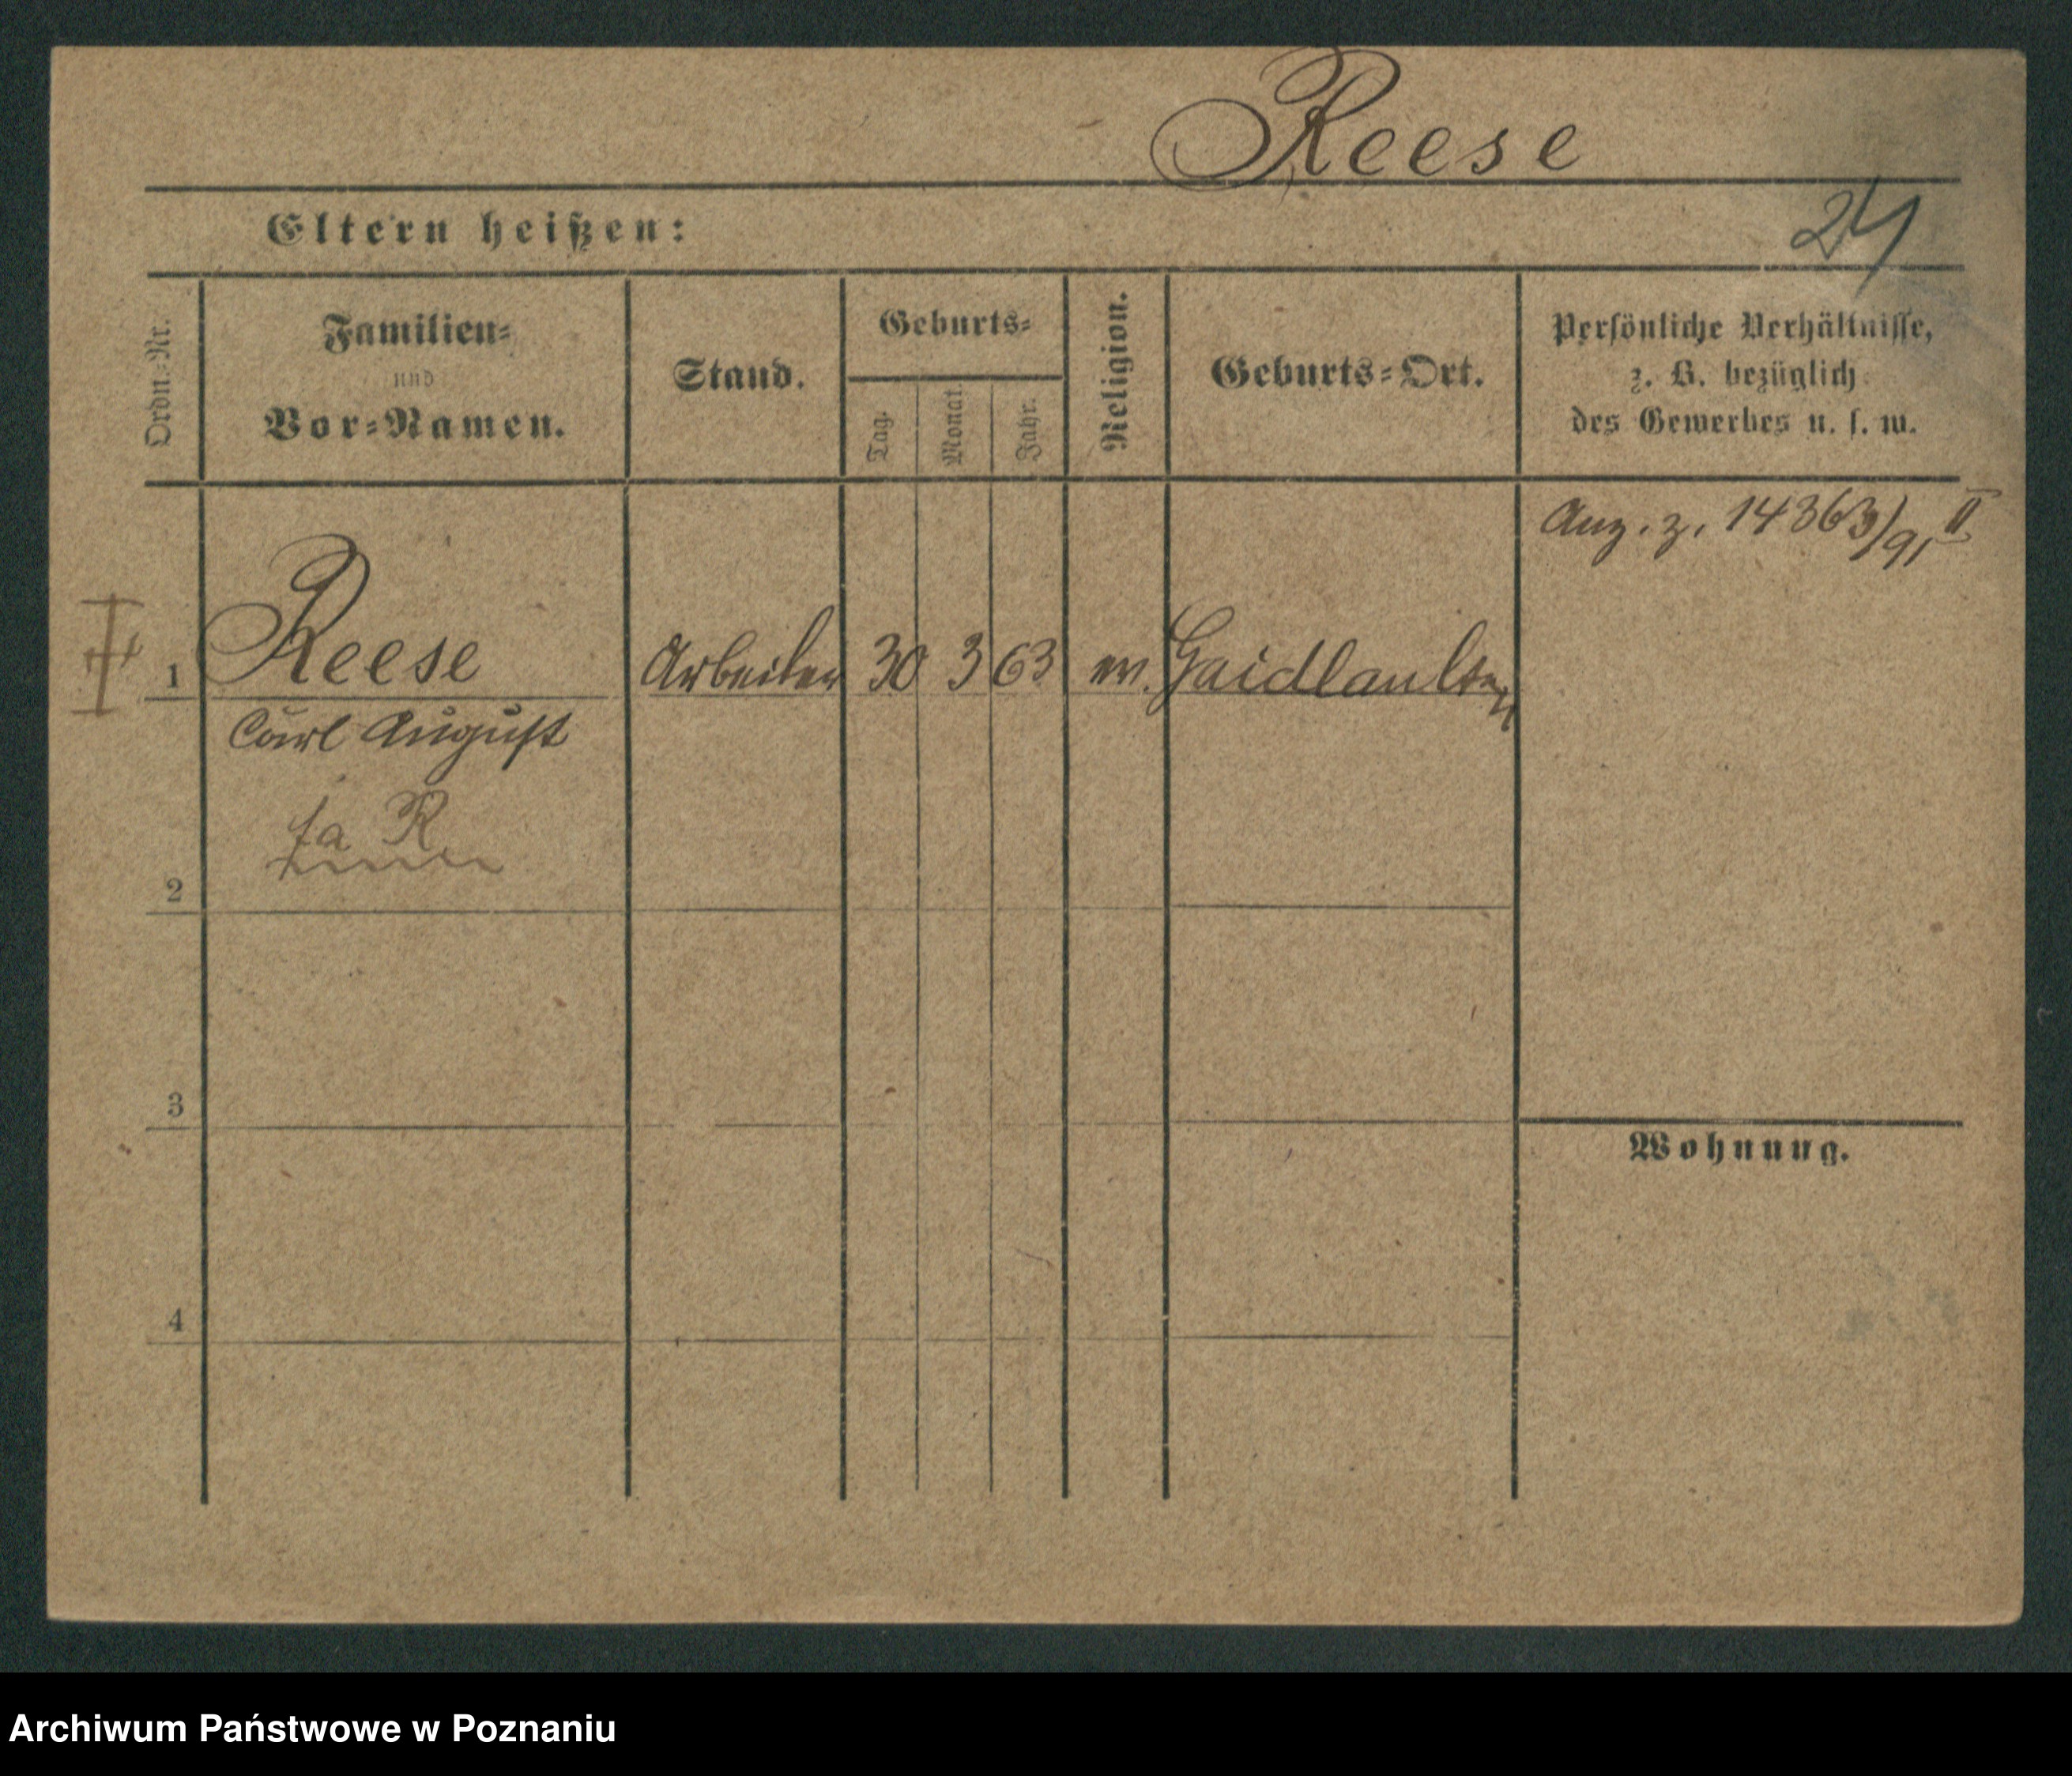 Reese
Eltern heißen:
24
Ordn.-Nr.
Familien-
und
Vor-Namen.
Stand.
Geburts-
Tag.
Monat.
Jahr.
Religion.
Geburts-Ort.
Persönliche Verhältnisse,
z. B. bezüglich
des Gewerbes u. s. w.
Anz. z. 14363/91 II
1 Reese Arbeiter 30 3 63 ev.
Carl August
R
2
3
Wohnung.
4
Archiwum Państwowe w Poznaniu